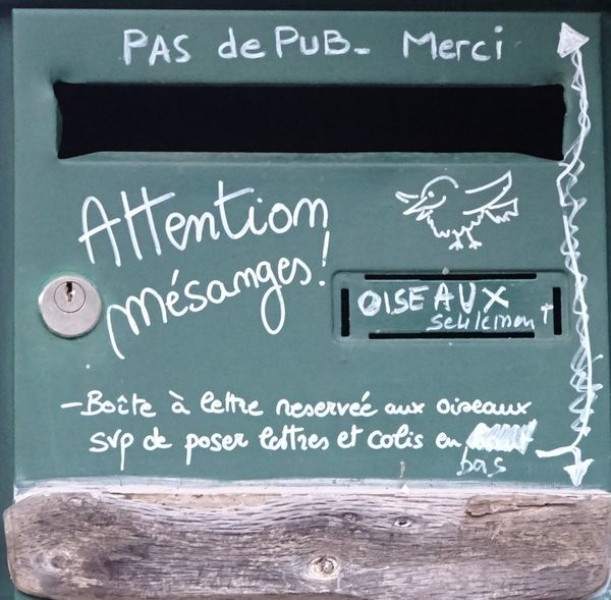 PAS de PUB- Merci
Attention
mésanges!
OISEAUX
seulement
-Boîte à lettre reserveé aux oiseaux
svp de poser lettres et colis en
bas